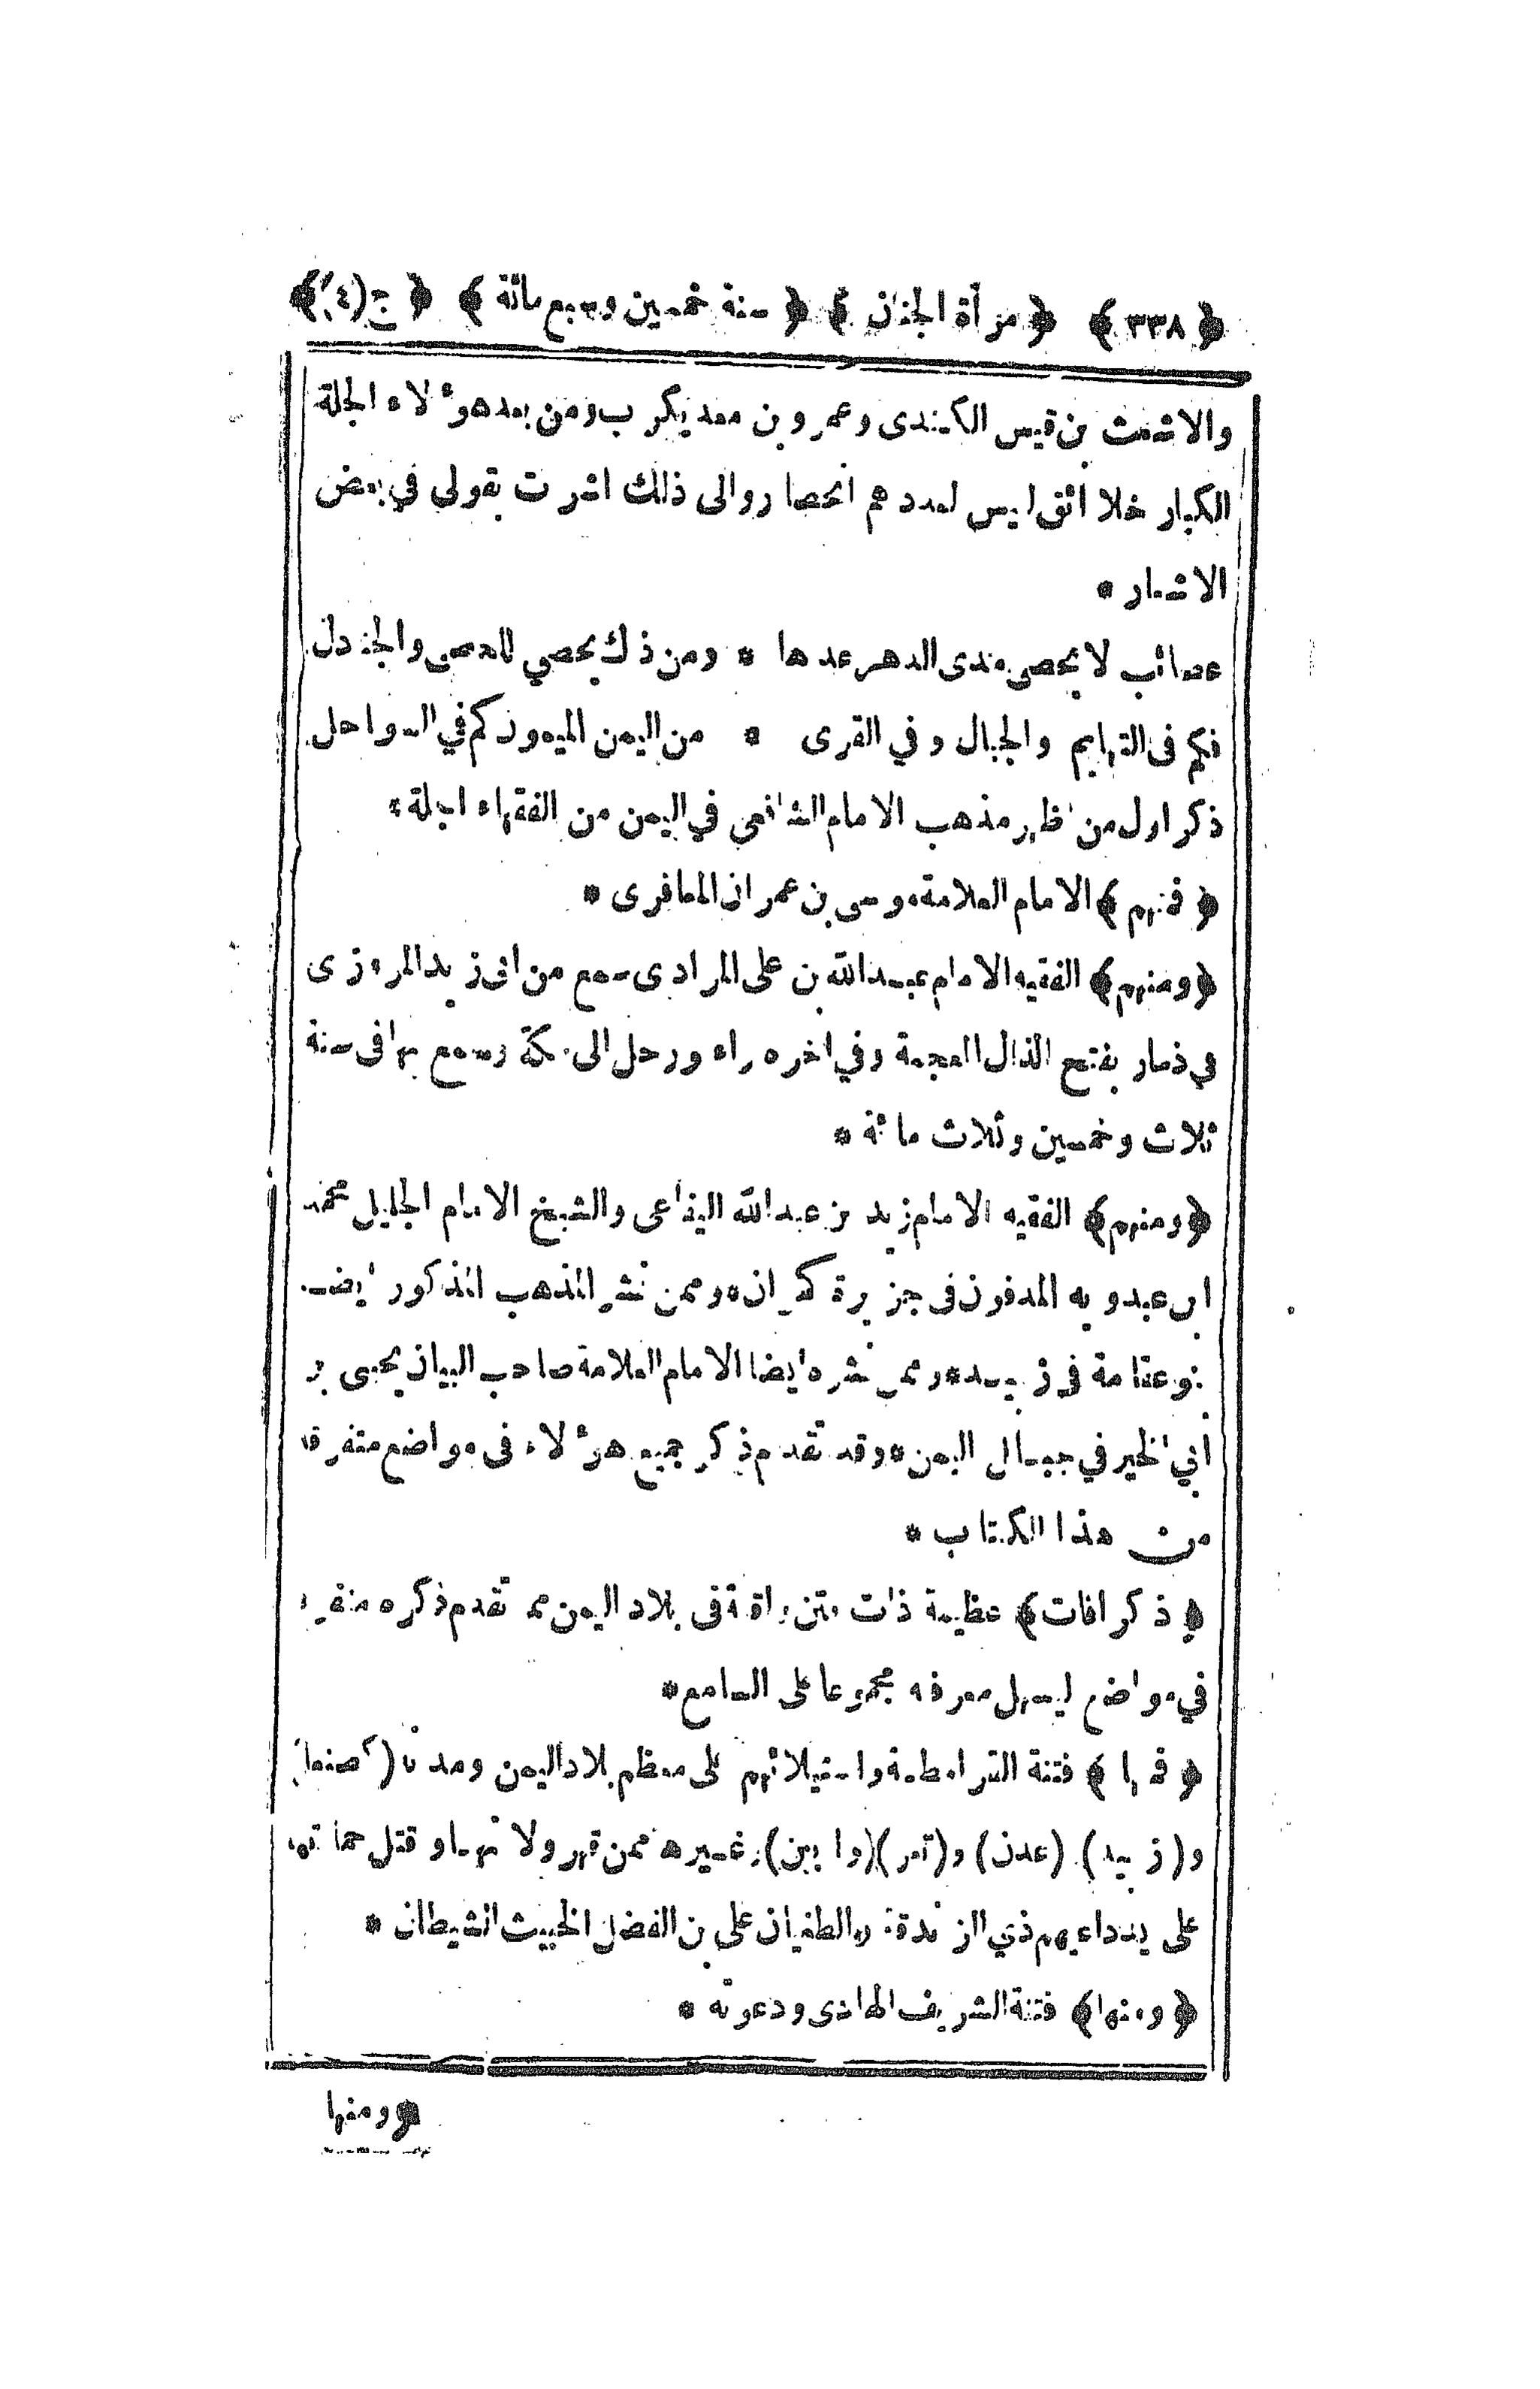 ﴿ ٣٣٨ ﴾ ﴿ مرأة الجنان ﴾ ﴿ سنة خمسين وسبع مائة ﴾ ﴿ ج (٤) ﴾
والاشعث بن قيس الكندى وعمرو بن معد يكرب ومن بعد هو ٔلاء الجلة
الكبار خلا ئق ليس لعدد هم انحصا روالى ذلك اشرت بقولى في بعض
الاشعار *
عصائب لا يحصى مدى الدهر عدها * ومن ذاك يحصي للحصى والجنادل
فكم فى التهايم والجبال وفي القرى * من اليمن الميمون كم في السواحل
ذكر اول من اظهر مذهب الامام الشافعى في اليمن من الفقهاء اجلة *
﴿ فمنهم ﴾ الامام العلامة موسى بن عمران المعافرى *
﴿ ومنهم ﴾ الفقيه الامام عبد الله بن على المرادى سمع من ابى زيد المروزى
في ذمار بفتح الذال المعجمة وفي اخره راء ورحل الى مكة وسمع بها فى سنة
ثلاث وخمسين وثلاث مائة *
﴿ ومنهم ﴾ الفقيه الامام زيد بن عبد الله اليفاعى والشيخ الامام الجليل محمد
ابن عبدويه المدفون فى جزيرة كمران * وممن نشر المذهب المذكور ايضا
بنو عقامة فى زبيد * وممن نشره ايضا الامام العلامة صاحب البيان يحيى بن
أبي الخير في جبال اليمن * وقد تقدم ذكر جميع هو ٔلاء فى مواضع متفرقة
من هذا الكتاب *
﴿ ذكر افات ﴾ عظيمة ذات فتن واقعة فى بلاد اليمن مما تقدم ذكره متفرقا
في مواضع ليسهل معرفته مجموعا على السامع *
﴿ فمنها ﴾ فتنة القرامطة واستيلائهم على معظم بلاد اليمن ومدنه (كصنعاء)
و (زبيد) (عدن) و (تعز) (وابين) وغيرها ممن قهر ولاتها وقتل حماتها
على يد داعيهم ذي الزندقة والطغيان على بن الفضل الخبيث الشيطان *
﴿ ومنها ﴾ فتنة الشريف الهادى ودعوته *
﴿ ومنها